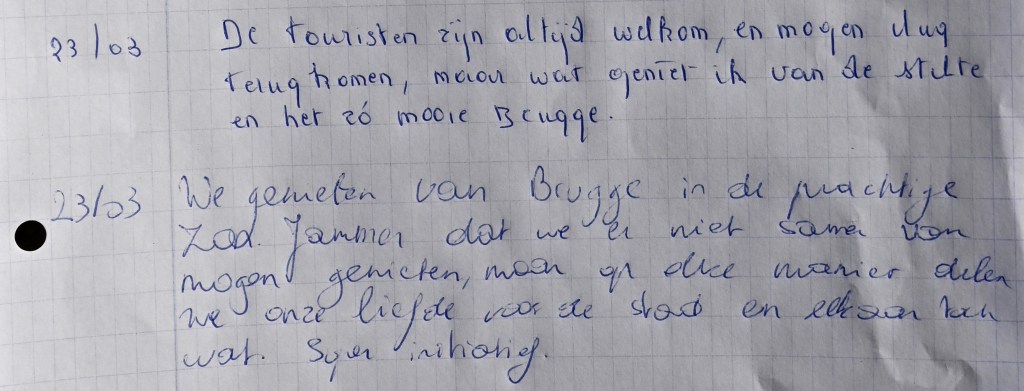 23/03 De touristen zijn altijd welkom, en mogen vlug
terug komen, maar wat geniet ik van de stilte
en het zó mooie Brugge.
23/03 We genieten van Brugge in de prachtige
zon. Jammer dat we er niet samen van
mogen genieten, maar op deze manier delen
we onze liefde voor de stad en elkaar toch
wat. Super initiatief.